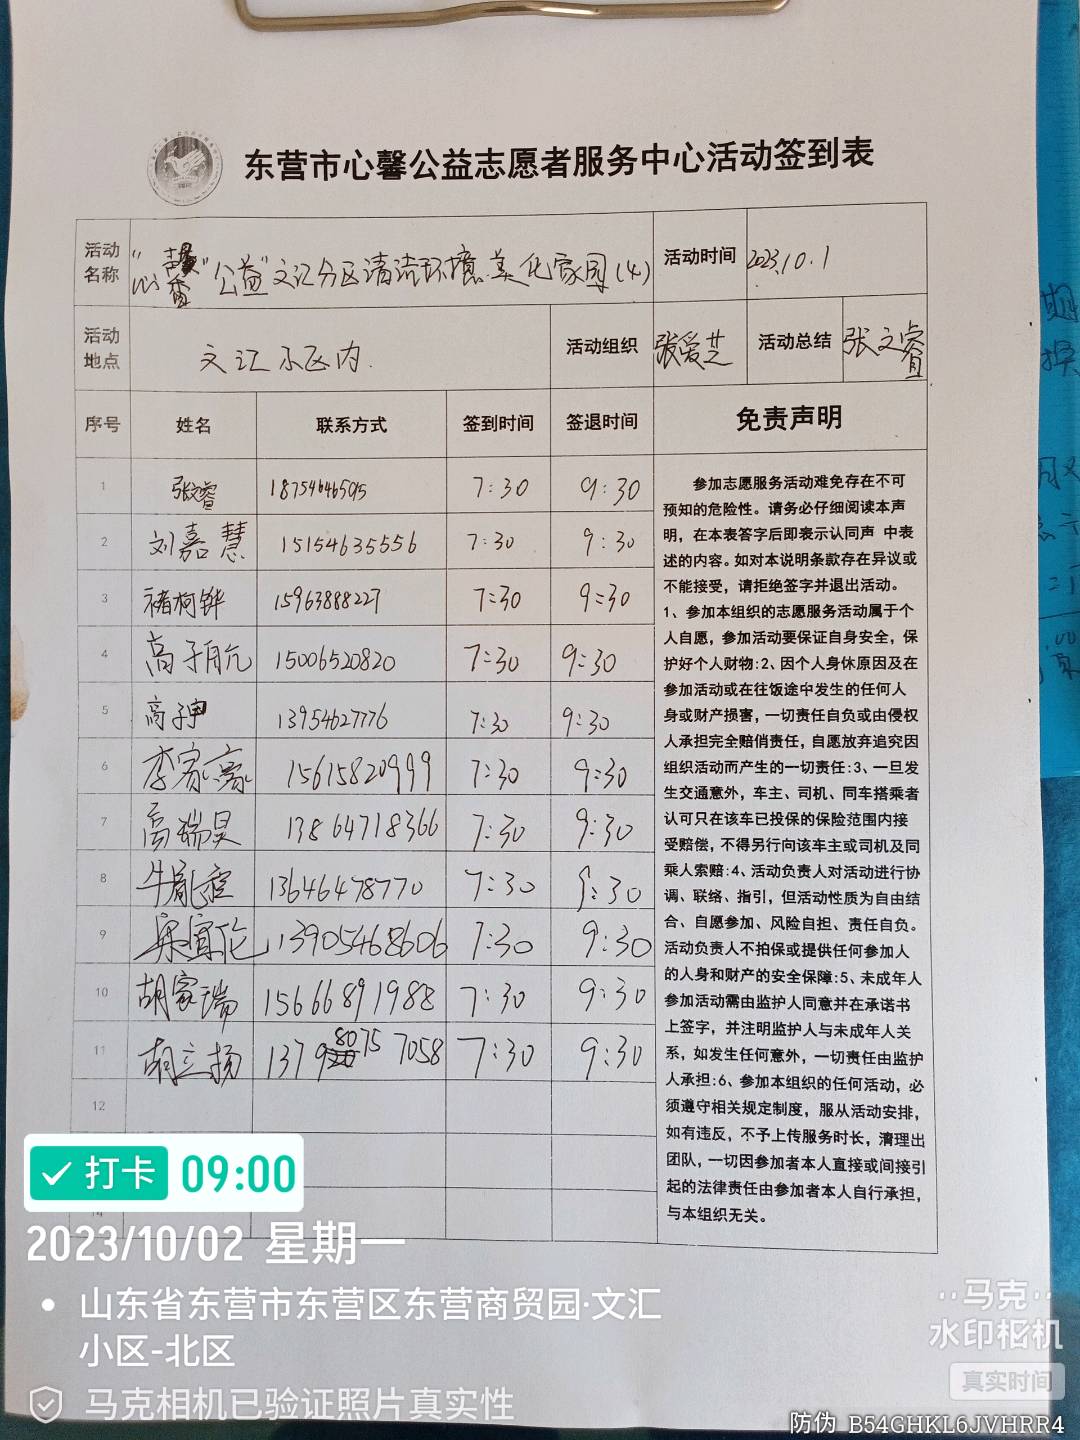 东营市心馨公益志愿者服务中心活动签到表
活动名称 "心馨"公益"文汇分区清洁环境美化家园(4) 活动时间 2023.10.1
活动地点 文汇小区内. 活动组织 张爱芝 活动总结 张文睿
序号 姓名 联系方式 签到时间 签退时间 免责声明
1 张文睿 18754646595 7:30 9:30
2 刘嘉慧 15154635556 7:30 9:30
3 褚柯铧 15963888227 7:30 9:30
4 高子航 15006520820 7:30 9:30
5 高子申 13954627776 7:30 9:30
6 李家豪 15615820999 7:30 9:30
7 高瑞昊 13864718366 7:30 9:30
8 牛胤程 13646478770 7:30 9:30
9 宋宜伦 13905468606 7:30 9:30
10 胡家瑞 15666891988 7:30 9:30
11 胡立扬 13798075 7058 7:30 9:30
12
14
参加志愿服务活动难免存在不可
预知的危险性。请务必仔细阅读本声
明，在本表签字后即表示认同声 中表
述的内容。如对本说明条款存在异议或
不能接受，请拒绝签字并退出活动。
1、参加本组织的志愿服务活动属于个
人自愿，参加活动要保证自身安全，保
护好个人财物:2、因个人身休原因及在
参加活动或在往饭途中发生的任何人
身或财产损害，一切责任自负或由侵权
人承担完全赔俏责任，自愿放弃追究因
组织活动而产生的一切责任:3、一旦发
生交通意外，车主、司机、同车搭乘者
认可只在该车已投保的保险范围内接
受赔偿，不得另行向该车主或司机及同
乘人索赔:4、活动负责人对活动进行协
调、联络、指引，但活动性质为自由结
合、自愿参加、风险自担、责任自负。
活动负责人不拍保或提供任何参加人
的人身和财产的安全保障:5、未成年人
参加活动需由监护人同意并在承诺书
上签字，并注明监护人与未成年人关
系，如发生任何意外，一切责任由监护
人承担:6、参加本组织的任何活动，必
须遵守相关规定制度，服从活动安排，
如有违反，不予上传服务时长，清理出
团队，一切因参加者本人直接或间接引
起的法律责任由参加者本人自行承担，
与本组织无关。
打卡 09:00
2023/10/02 星期一
山东省东营市东营区东营商贸园·文汇
小区-北区
马克相机已验证照片真实性
马克
水印相机
真实时间
防伪 B54GHKL6JVHRR4